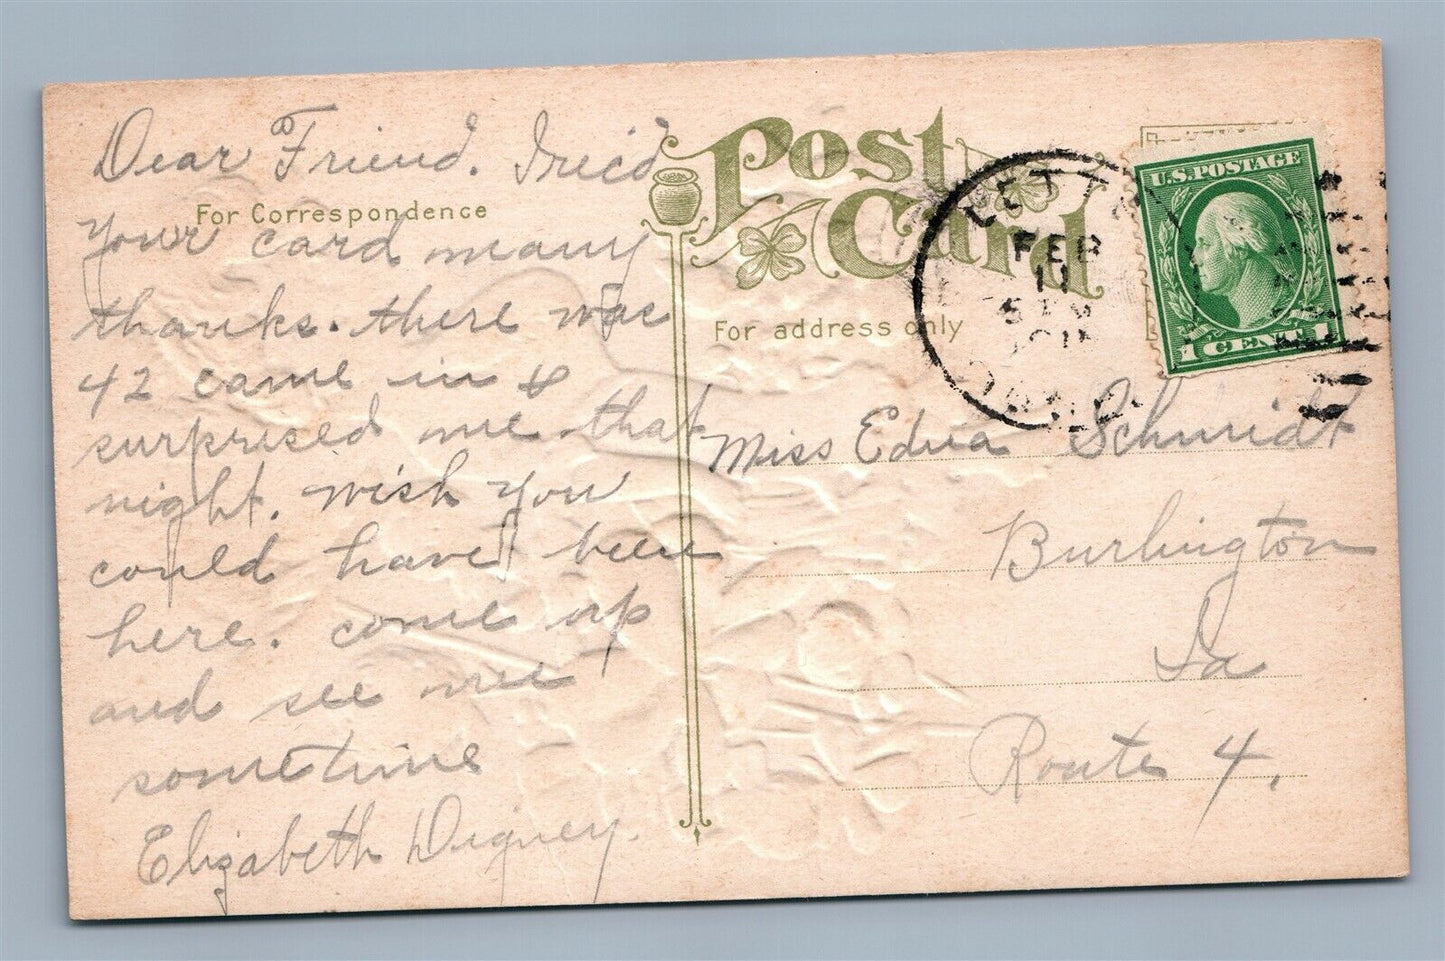 Dear Friend. I rec'd
For Correspondence
your card many
thanks. there was
42 came in &
surprised me that
night. wish you
could have been
here. come up
and see me
sometime
Elizabeth Digney.
Post
Card
For address only
LETTS
FEB
11
IOWA
U.S. POSTAGE
1 CENT 1
Miss Edna Schmidt
Burlington
Ia
Route 4.